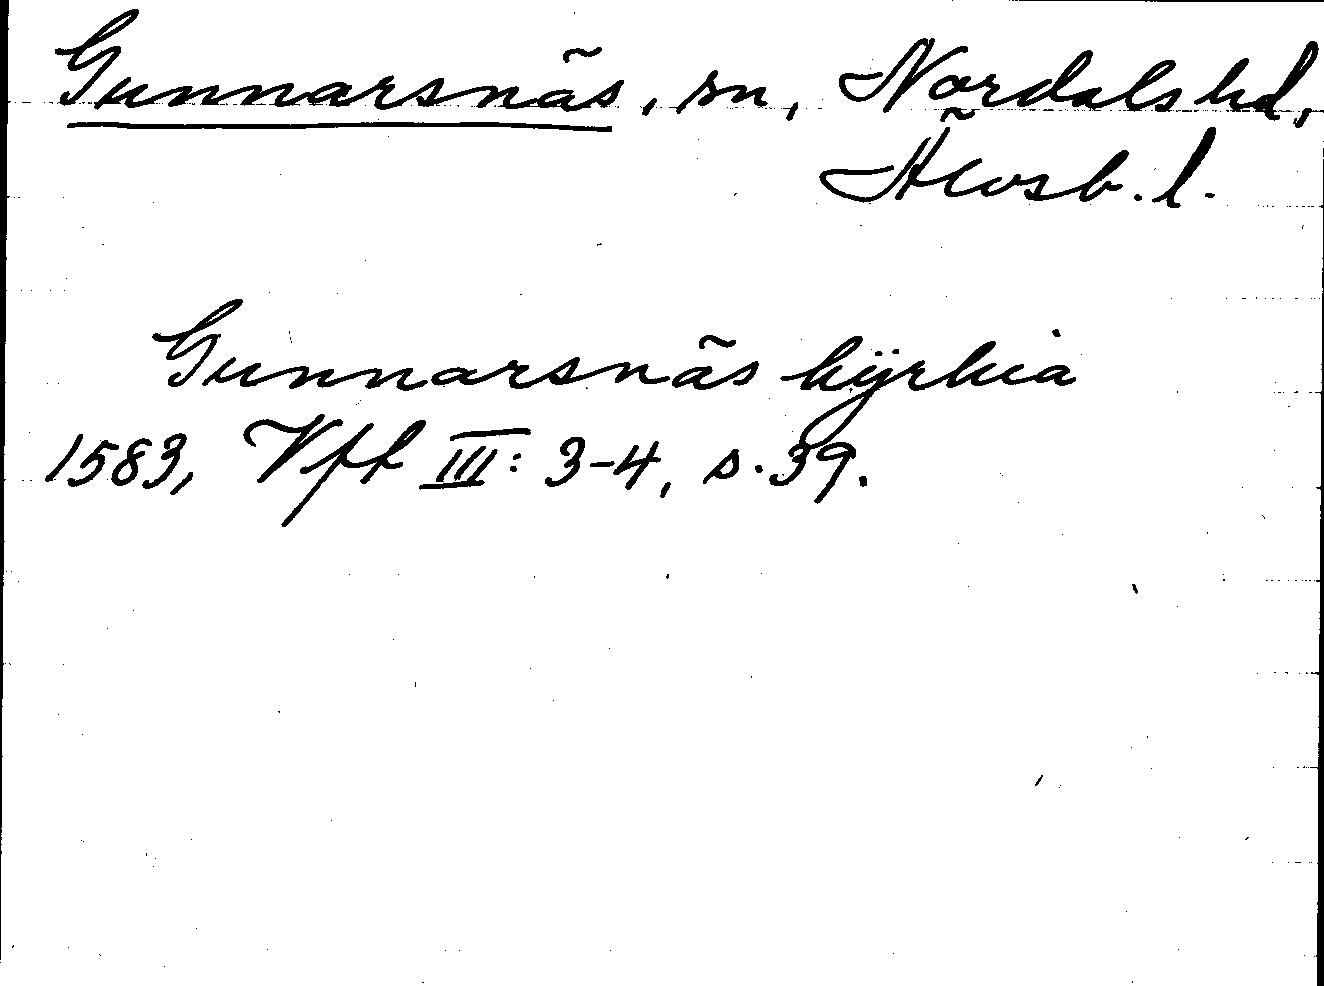 Gunnarsnäs, sn, Nordals hd,
Älvsb. l.
Gunnarsnäs kÿrkia
1583, Vft III: 3-4, s. 39.